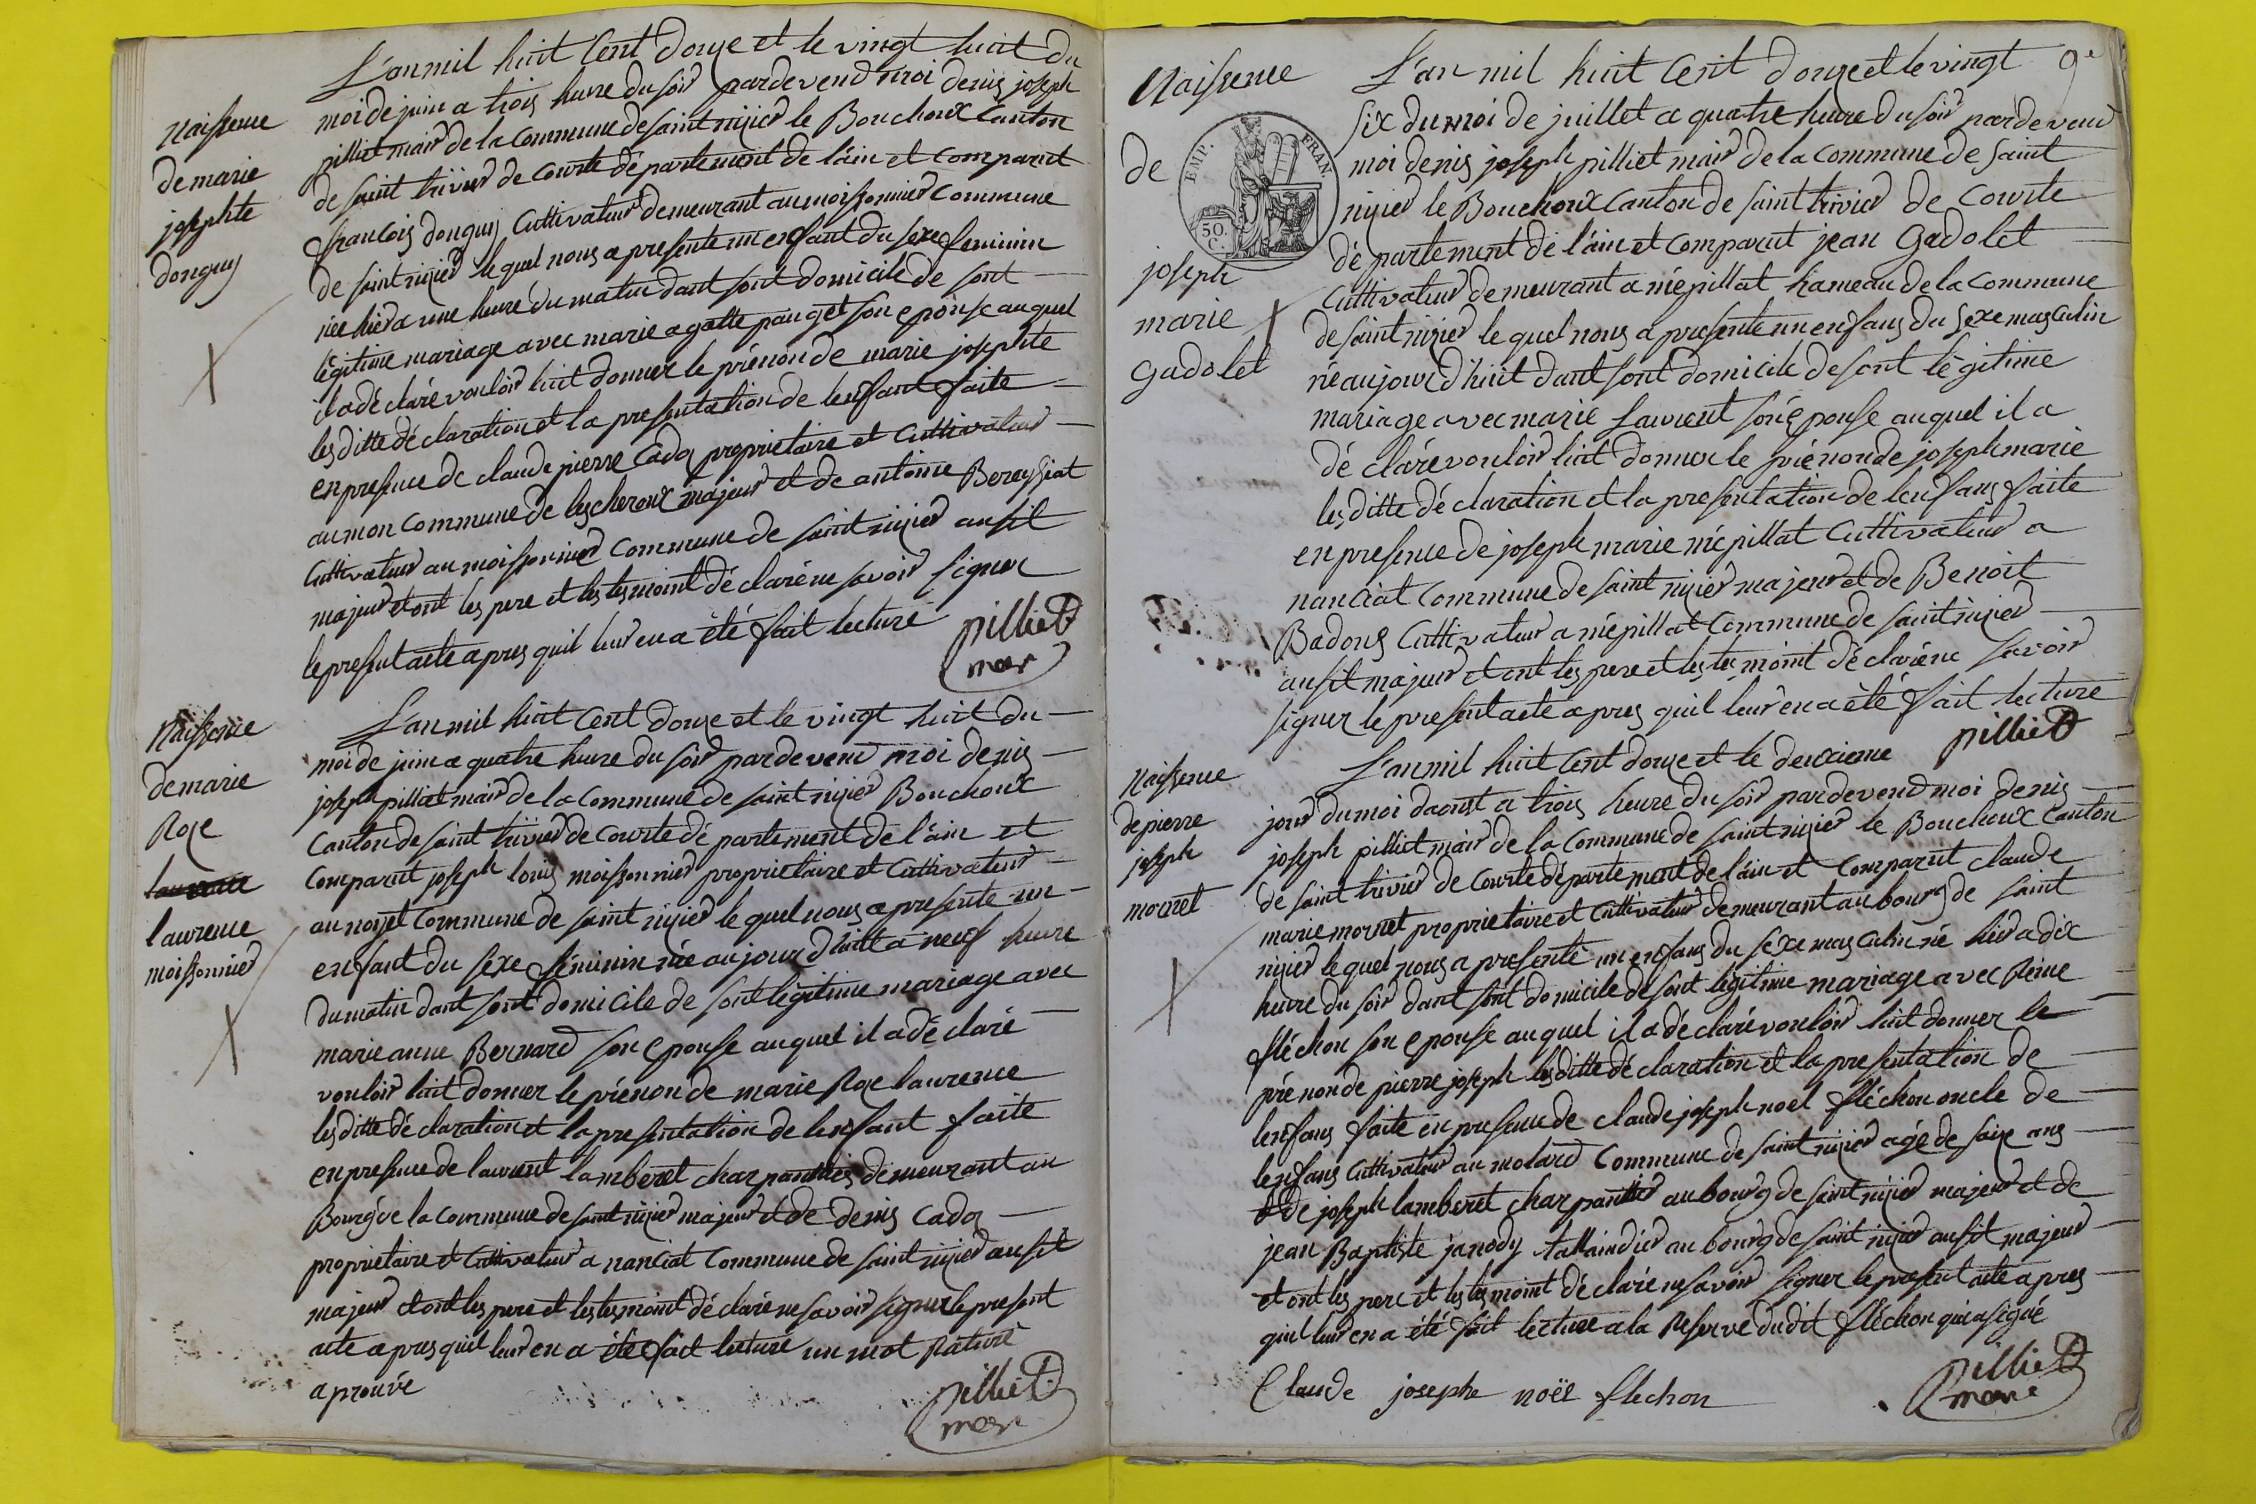 L'an mil huit Cent douze et le vingt huit du
moi de juin a trois heure du soir pardevend moi denis joseph
pilliet mair de la Commune de saint nizier le Bouchoux Canton
de saint trivier de Courte département de l'ain et Comparut
francois donguy Cuttivateur demeurant au moissonnier Commune
de saint nizier le quel nous a presente un enfant du sexe feminin
née hier a une heure du matin dant sont domicile de sont
légitime mariage avec marie agatte pauget son eponse auquel
il a déclaré vouloir luit donner le prénon de marie josephte
les ditte déclaration et la presentation de lenfant faite
en presence de claude pierre Cadoz proprietaire et Cuttivateur
au mon Commune de lescheroux majeur et de antoine Bereyziat
Cuttivateur au moissonnier Commune de saint nizier ausit
majeur et ont les pere et les tesmoint déclaré ne savoir signer
le present acte apres quil leur en a été fait lecture
pilliet
mair
Naissence
de marie
josephte
donguy
L'an mil huit Cent douze et le vingt huit du
moi de juin a quatre heure du soir pardevend moi denis
joseph pilliet mair de la Commune de saint nizier Bouchoux
Canton de saint trivier de Courte département de l'ain et
Comparut joseph louis moissonnier proprietaire et Cuttivateur
au noyet Commune de saint nizier le quel nous a presente un
enfant du sexe féminin née aujour d'huit a neuf heure
du matin dant sont domicile de sont légitime mariage avec
marie anne Bernard son eponse auquel il a déclaré
vouloir luit donner le prénon de marie Roze laurence
les ditte déclaration et la presentation de lenfant faite
en presence de laurent lamberet charpantier demeurant au
Bourg de la Commune de saint nizier majeur et de denis Cadoz
proprietaire et Cuttivateur a nanciat Commune de saint nizier ausit
majeur et ont les pere et les tesmoint déclaré ne savoir signer le present
acte apres quil leur en a été fait lecture un mot Raturé
aprouvé
pilliet
mair
Naissence
de marie
Roze
laurence
moissonnier
9e
L'an mil huit Cent douze et le vingt
six du moi de juillet a quatre heure du soir pardevend
moi denis joseph pilliet mair de la Commune de saint
nizier le Bouchoux Canton de saint trivier de Courte
département de l'ain et Comparut jean Gadolet
Cuttivateur demeurant a mépillat hameau de la Commune
de saint nizier le quel nous a presente un enfans du sexe masculin
né aujour d'huit dant sont domicile de sont légitime
mariage avec marie Laurent son éponse auquel il a
déclaré vouloir luit donner le prénon de joseph marie
les ditte déclaration et la presentation de lenfans faite
en presence de joseph marie mépillat Cuttivateur a
nanciat Commune de saint nizier majeur et de Benoit
Badoux Cuttivateur a mépillat Commune de saint nizier
ausit majeur et ont les pere et les tesmoint déclaré ne savoir
signer le present acte apres quil leur en a été fait lecture
pilliet
Naissence
de
joseph
marie
Gadolet
EMP. FRAN.
50.
C.
L'an mil huit Cent douze et le deuxieme
jour du moi daoust a trois heure du soir pardevend moi denis
joseph pilliet mair de la Commune de saint nizier le Bouchoux Canton
de saint trivier de Courte département de l'ain et Comparut claude
marie mornet proprietaire et Cuttivateur demeurant au bourg de saint
nizier le quel nous a presenté un enfans du sexe masculin né hier a dix
heure du soir dant sont domicile de sont legitime mariage avec Reine
fléchon son eponse auquel il a déclaré vouloir luit donner le
prénon de pierre joseph les ditte déclaration et la presentation de
lenfans faite en presence de claude joseph noel fléchon oncle de
lenfans Cuttivateur au molard Commune de saint nizier agé de saize ans
et de joseph lamberet charpantier au bourg de saint nizier majeur et de
jean Baptiste janody taillaindier au bourg de saint nizier ausit majeur
et ont les pere et les tesmoint déclaré ne savoir signer le present acte apres
quil leur en a été fait lecture a la Reserve dudit fléchon qui a signé
Claude josephe noël flechon
pilliet
maire
Naissence
de pierre
joseph
mornet